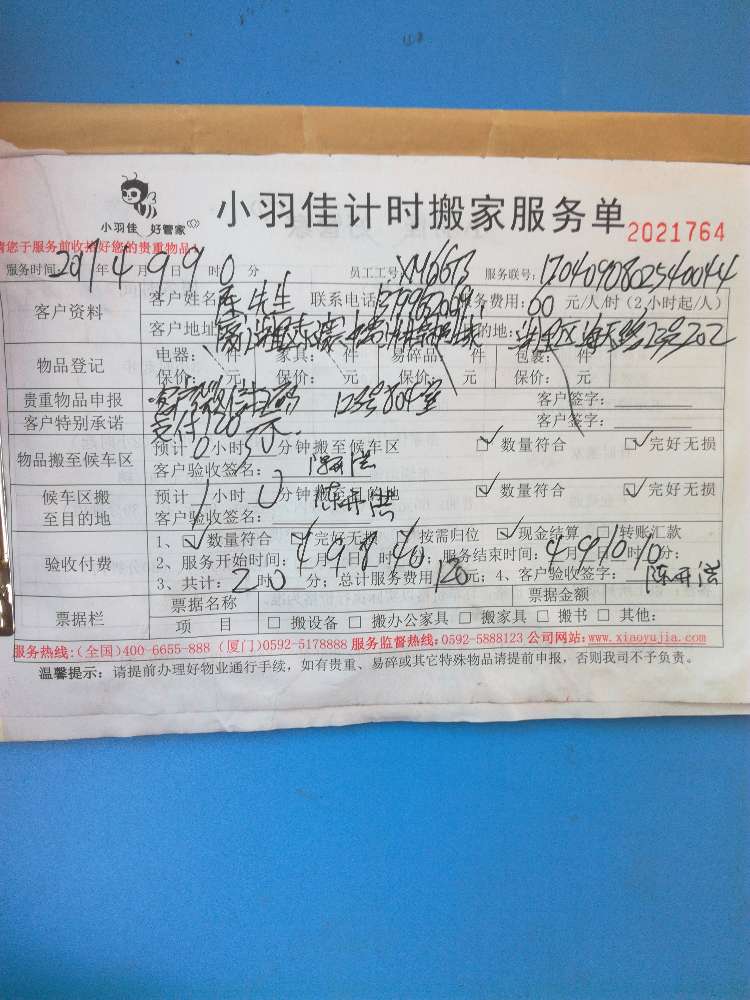 小羽佳 好管家
小羽佳计时搬家服务单 2021764
请您于服务前收拾好您的贵重物品
服务时间:2017年4月9日9时0分 员工工号: 服务联号:
客户资料
客户姓名 先生 联系电话 服务费用:60元/人/时(2小时起/人)
客户地址 目的地: 202
物品登记
电器: 件 家具: 件 易碎品: 件 包裹: 件
保价: 元 保价: 元 保价: 元 保价: 元
贵重物品申报 客户签字:
客户特别承诺 支付120元 客户签字:
物品搬至候车区 预计0小时50分钟搬至候车区 数量符合 完好无损
客户验收签名:
候车区搬至目的地 预计1小时0分钟搬至目的地 数量符合 完好无损
客户验收签名:
验收付费
1、数量符合 完好无损 按需归位 现金结算 转账汇款
2、服务开始时间:4月9日8时40分;服务结束时间:4月9日10时10分;
3、共计:2时0分;总计服务费用120元;4、客户验收签字:
票据栏 票据名称 票据金额
项 目 搬设备 搬办公家具 搬家具 搬书 其他:
服务热线:(全国)400-6655-888 (厦门)0592-5178888 服务监督热线:0592-5888123 公司网站:www.xiaoyujia.com
温馨提示:请提前办理好物业通行手续,如有贵重、易碎或其它特殊物品请提前申报,否则我司不予负责。